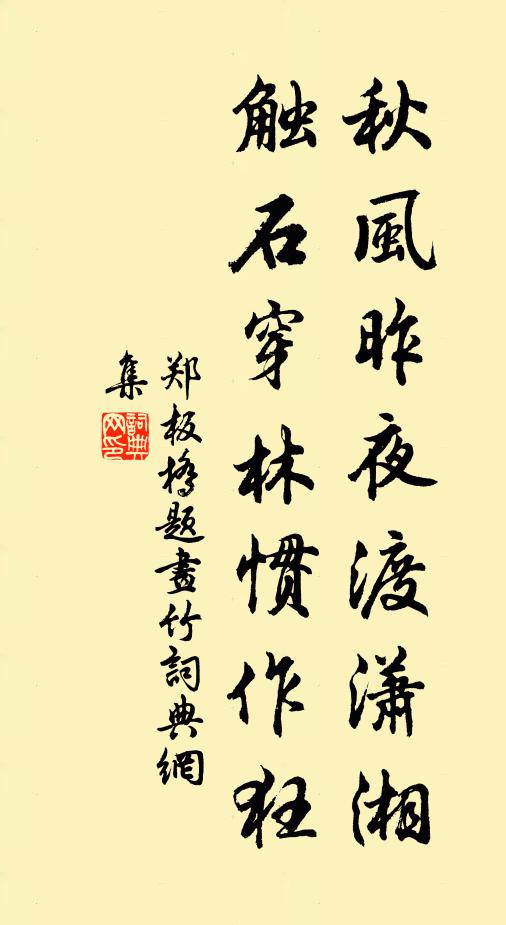 秋風昨夜渡瀟湘
触石穿林慣作狂
郑板橋題畫竹詞典網
集
詞典
网印